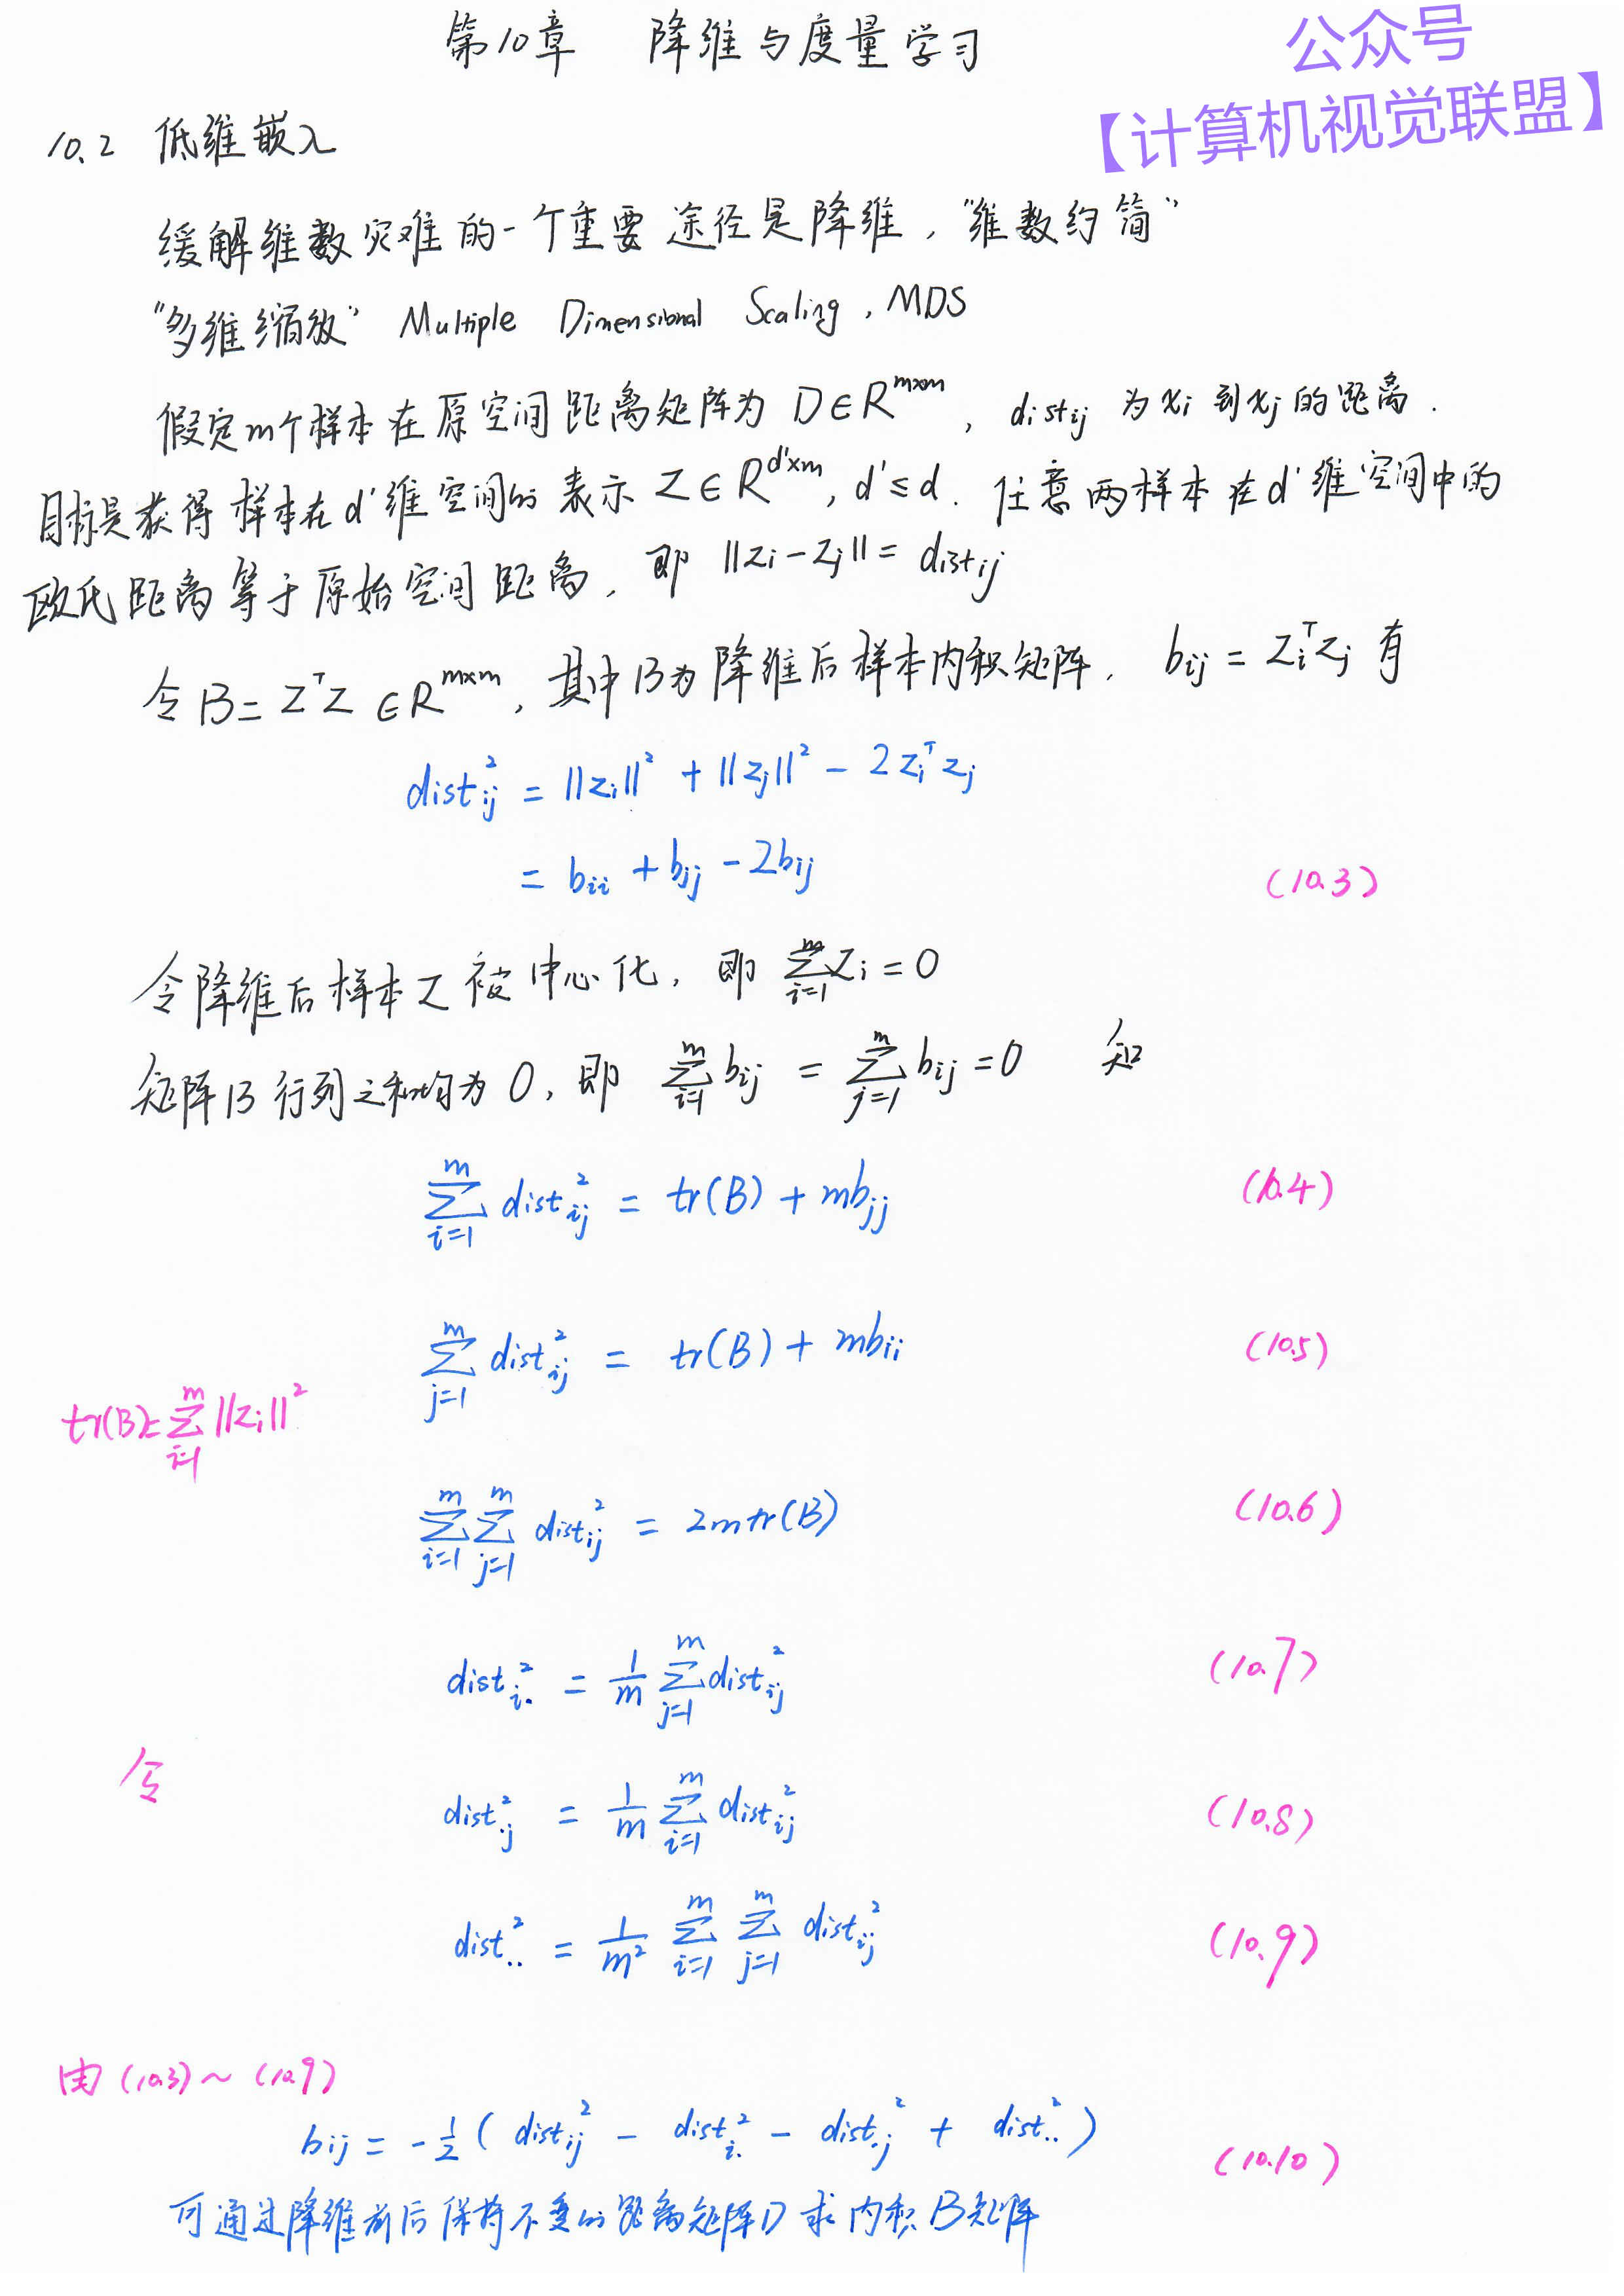 第10章 降维与度量学习
公众号
【计算机视觉联盟】
10.2 低维嵌入
缓解维数灾难的一个重要途径是降维，“维数约简”
“多维缩放” Multiple Dimensional Scaling, MDS
假定m个样本在原空间距离矩阵为 D∈R^{m×m}, dist_{ij} 为x_i到x_j的距离.
目标是获得样本在d'维空间的表示 Z∈R^{d'×m}, d'≤d. 任意两样本在d'维空间中的
欧氏距离等于原始空间距离, 即 ||z_i-z_j|| = dist_{ij}
令B=Z^TZ∈R^{m×m}, 其中B为降维后样本内积矩阵, b_{ij}=z_i^Tz_j 有
dist_{ij}^2 = ||z_i||^2 + ||z_j||^2 - 2z_i^Tz_j
= b_{ii} + b_{jj} - 2b_{ij} (10.3)
令降维后样本Z被中心化, 即 ∑_{i=1}^{m} z_i = 0
矩阵B行列之和均为0, 即 ∑_{i=1}^{m} b_{ij} = ∑_{j=1}^{m} b_{ij} = 0 知
∑_{i=1}^{m} dist_{ij}^2 = tr(B) + mb_{jj} (10.4)
∑_{j=1}^{m} dist_{ij}^2 = tr(B) + mb_{ii} (10.5)
tr(B)=∑_{i=1}^{m} ||z_i||^2
∑_{i=1}^{m} ∑_{j=1}^{m} dist_{ij}^2 = 2mtr(B) (10.6)
dist_{i.}^2 = 1/m ∑_{j=1}^{m} dist_{ij}^2 (10.7)
令
dist_{.j}^2 = 1/m ∑_{i=1}^{m} dist_{ij}^2 (10.8)
dist_{..}^2 = 1/m^2 ∑_{i=1}^{m} ∑_{j=1}^{m} dist_{ij}^2 (10.9)
由(10.3)~(10.9)
b_{ij} = -1/2 ( dist_{ij}^2 - dist_{i.}^2 - dist_{.j}^2 + dist_{..}^2 ) (10.10)
可通过降维前后保持不变的距离矩阵D求内积B矩阵